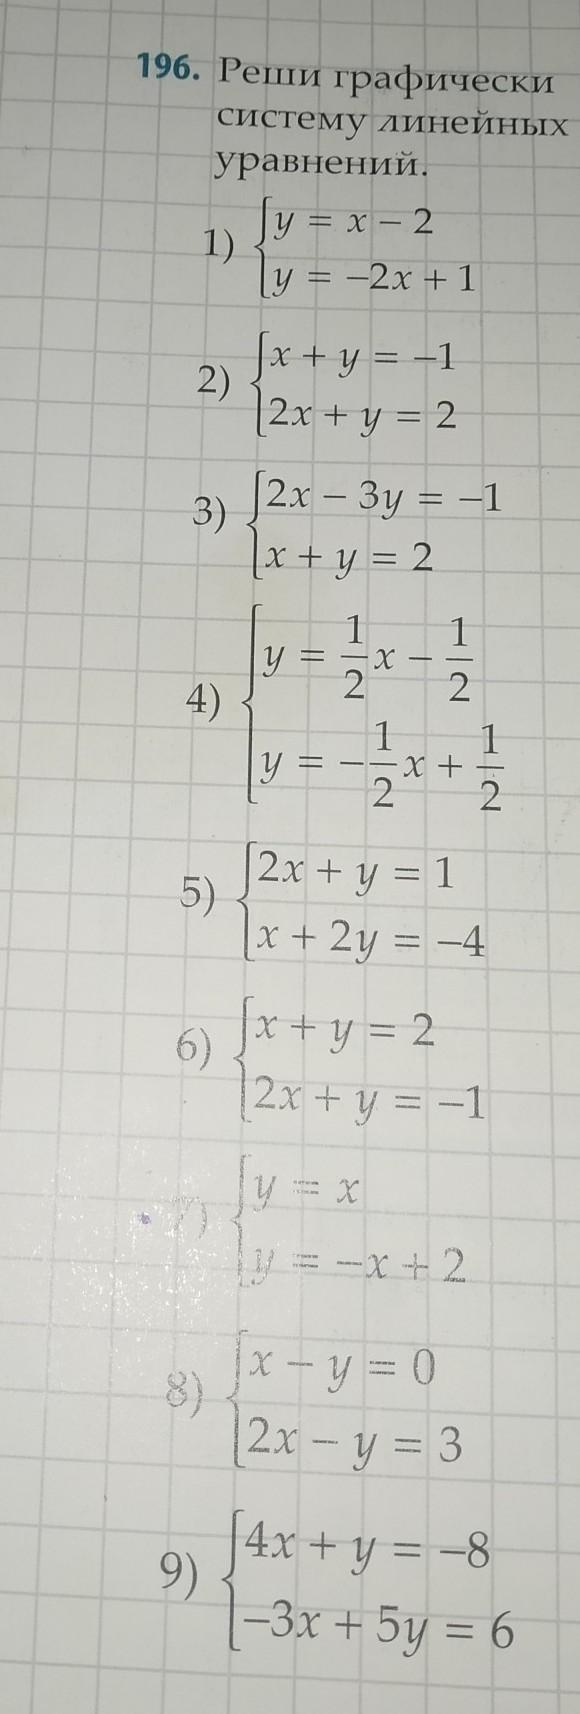 196. Реши графически
систему линейных
уравнений.
1) {y = x − 2
y = −2x + 1
2) {x + y = −1
2x + y = 2
3) {2x − 3y = −1
x + y = 2
4) {y = 1/2 x − 1/2
y = −1/2 x + 1/2
5) {2x + y = 1
x + 2y = −4
6) {x + y = 2
2x + y = −1
7) {y = x
y = −x + 2
8) {x − y = 0
2x − y = 3
9) {4x + y = −8
−3x + 5y = 6